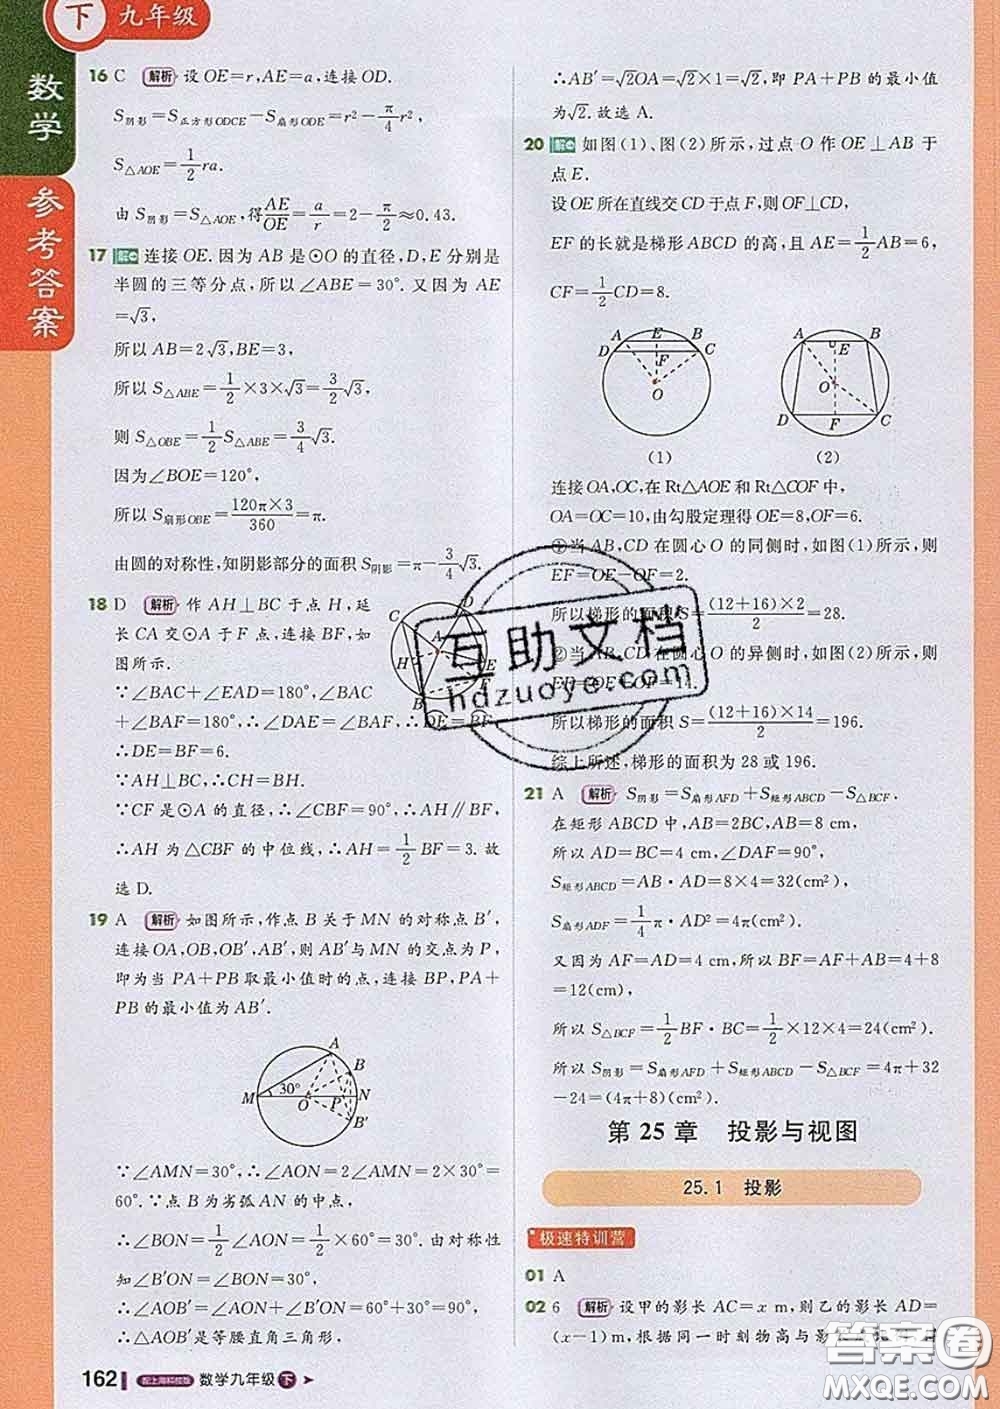 下 九年级
数学
参考答案
16 C 解析 设 OE=r,AE=a,连接 OD.
S阴影=S正方形ODCE-S扇形ODE=r²-π/4r²,
S△AOE=1/2ra.
由 S阴影=S△AOE,得AE/OE=a/r=2-π/2≈0.43.
17 解 连接 OE.因为 AB 是⊙O 的直径,D,E 分别是
半圆的三等分点,所以∠ABE=30°.又因为 AE
=√3,
所以 AB=2√3,BE=3,
所以 S△ABE=1/2×3×√3=3/2√3.
则 S△OBE=1/2S△ABE=3/4√3.
因为∠BOE=120°,
所以 S扇形OBE=120π×3/360=π.
由圆的对称性,知阴影部分的面积 S阴影=π-3/4√3.
18 D 解析 作 AH⊥BC 于点 H,延
长 CA 交⊙A 于 F 点,连接 BF,如
图所示.
∵∠BAC+∠EAD=180°,∠BAC
+∠BAF=180°,∴∠DAE=∠BAF,∴DE=BF,
∴DE=BF=6.
∵AH⊥BC,∴CH=BH.
∵CF 是⊙A 的直径,∴∠CBF=90°,∴AH∥BF,
∴AH 为△CBF 的中位线,∴AH=1/2BF=3.故
选 D.
C D A H E B F
19 A 解析 如图所示,作点 B 关于 MN 的对称点 B′,
连接 OA,OB,OB′,AB′,则 AB′与 MN 的交点为 P,
即为当 PA+PB 取最小值时的点,连接 BP,PA+
PB 的最小值为 AB′.
A B M 30° O P N B′
∵∠AMN=30°,∴∠AON=2∠AMN=2×30°=
60°.∵点 B 为劣弧AN 的中点,
∴∠BON=1/2∠AON=1/2×60°=30°.由对称性
知∠B′ON=∠BON=30°,
∴∠AOB′=∠AON+∠B′ON=60°+30°=90°,
∴△AOB′是等腰直角三角形,
∴AB′=√2OA=√2×1=√2,即 PA+PB 的最小值
为√2.故选 A.
20 解 如图(1)、图(2)所示,过点 O 作 OE⊥AB 于
点 E.
设 OE 所在直线交 CD 于点 F,则 OF⊥CD,
EF 的长就是梯形 ABCD 的高,且 AE=1/2AB=6,
CF=1/2CD=8.
A E B D F C O
A B E O D F C
(1) (2)
连接 OA,OC,在 Rt△AOE 和 Rt△COF 中,
OA=OC=10,由勾股定理得 OE=8,OF=6.
①当 AB,CD 在圆心 O 的同侧时,如图(1)所示,则
EF=OE-OF=2.
所以梯形的面积 S=(12+16)×2/2=28.
②当 AB,CD 在圆心 O 的异侧时,如图(2)所示,则
EF=OE+OF=14.
所以梯形的面积 S=(12+16)×14/2=196.
综上所述,梯形的面积为 28 或 196.
21 A 解析 S阴影=S扇形AFD+S矩形ABCD-S△BCF.
在矩形 ABCD 中,AB=2BC,AB=8 cm,
所以 AD=BC=4 cm,∠DAF=90°,
S矩形ABCD=AB·AD=8×4=32(cm²),
S扇形ADF=1/4π·AD²=4π(cm²).
又因为 AF=AD=4 cm,所以 BF=AF+AB=4+8
=12(cm),
所以 S△BCF=1/2BF·BC=1/2×12×4=24(cm²).
所以 S阴影=S扇形AFD+S矩形ABCD-S△BCF=4π+32
-24=(4π+8)(cm²).
第 25 章 投影与视图
25.1 投影
极速特训营
01 A
02 6 解析 设甲的影长 AC=x m,则乙的影长 AD=
(x-1)m,根据同一时刻物高与影
162 配上海科技版 数学九年级 下
互助文档
hdzuoye.com
答案圈
MXQE.COM